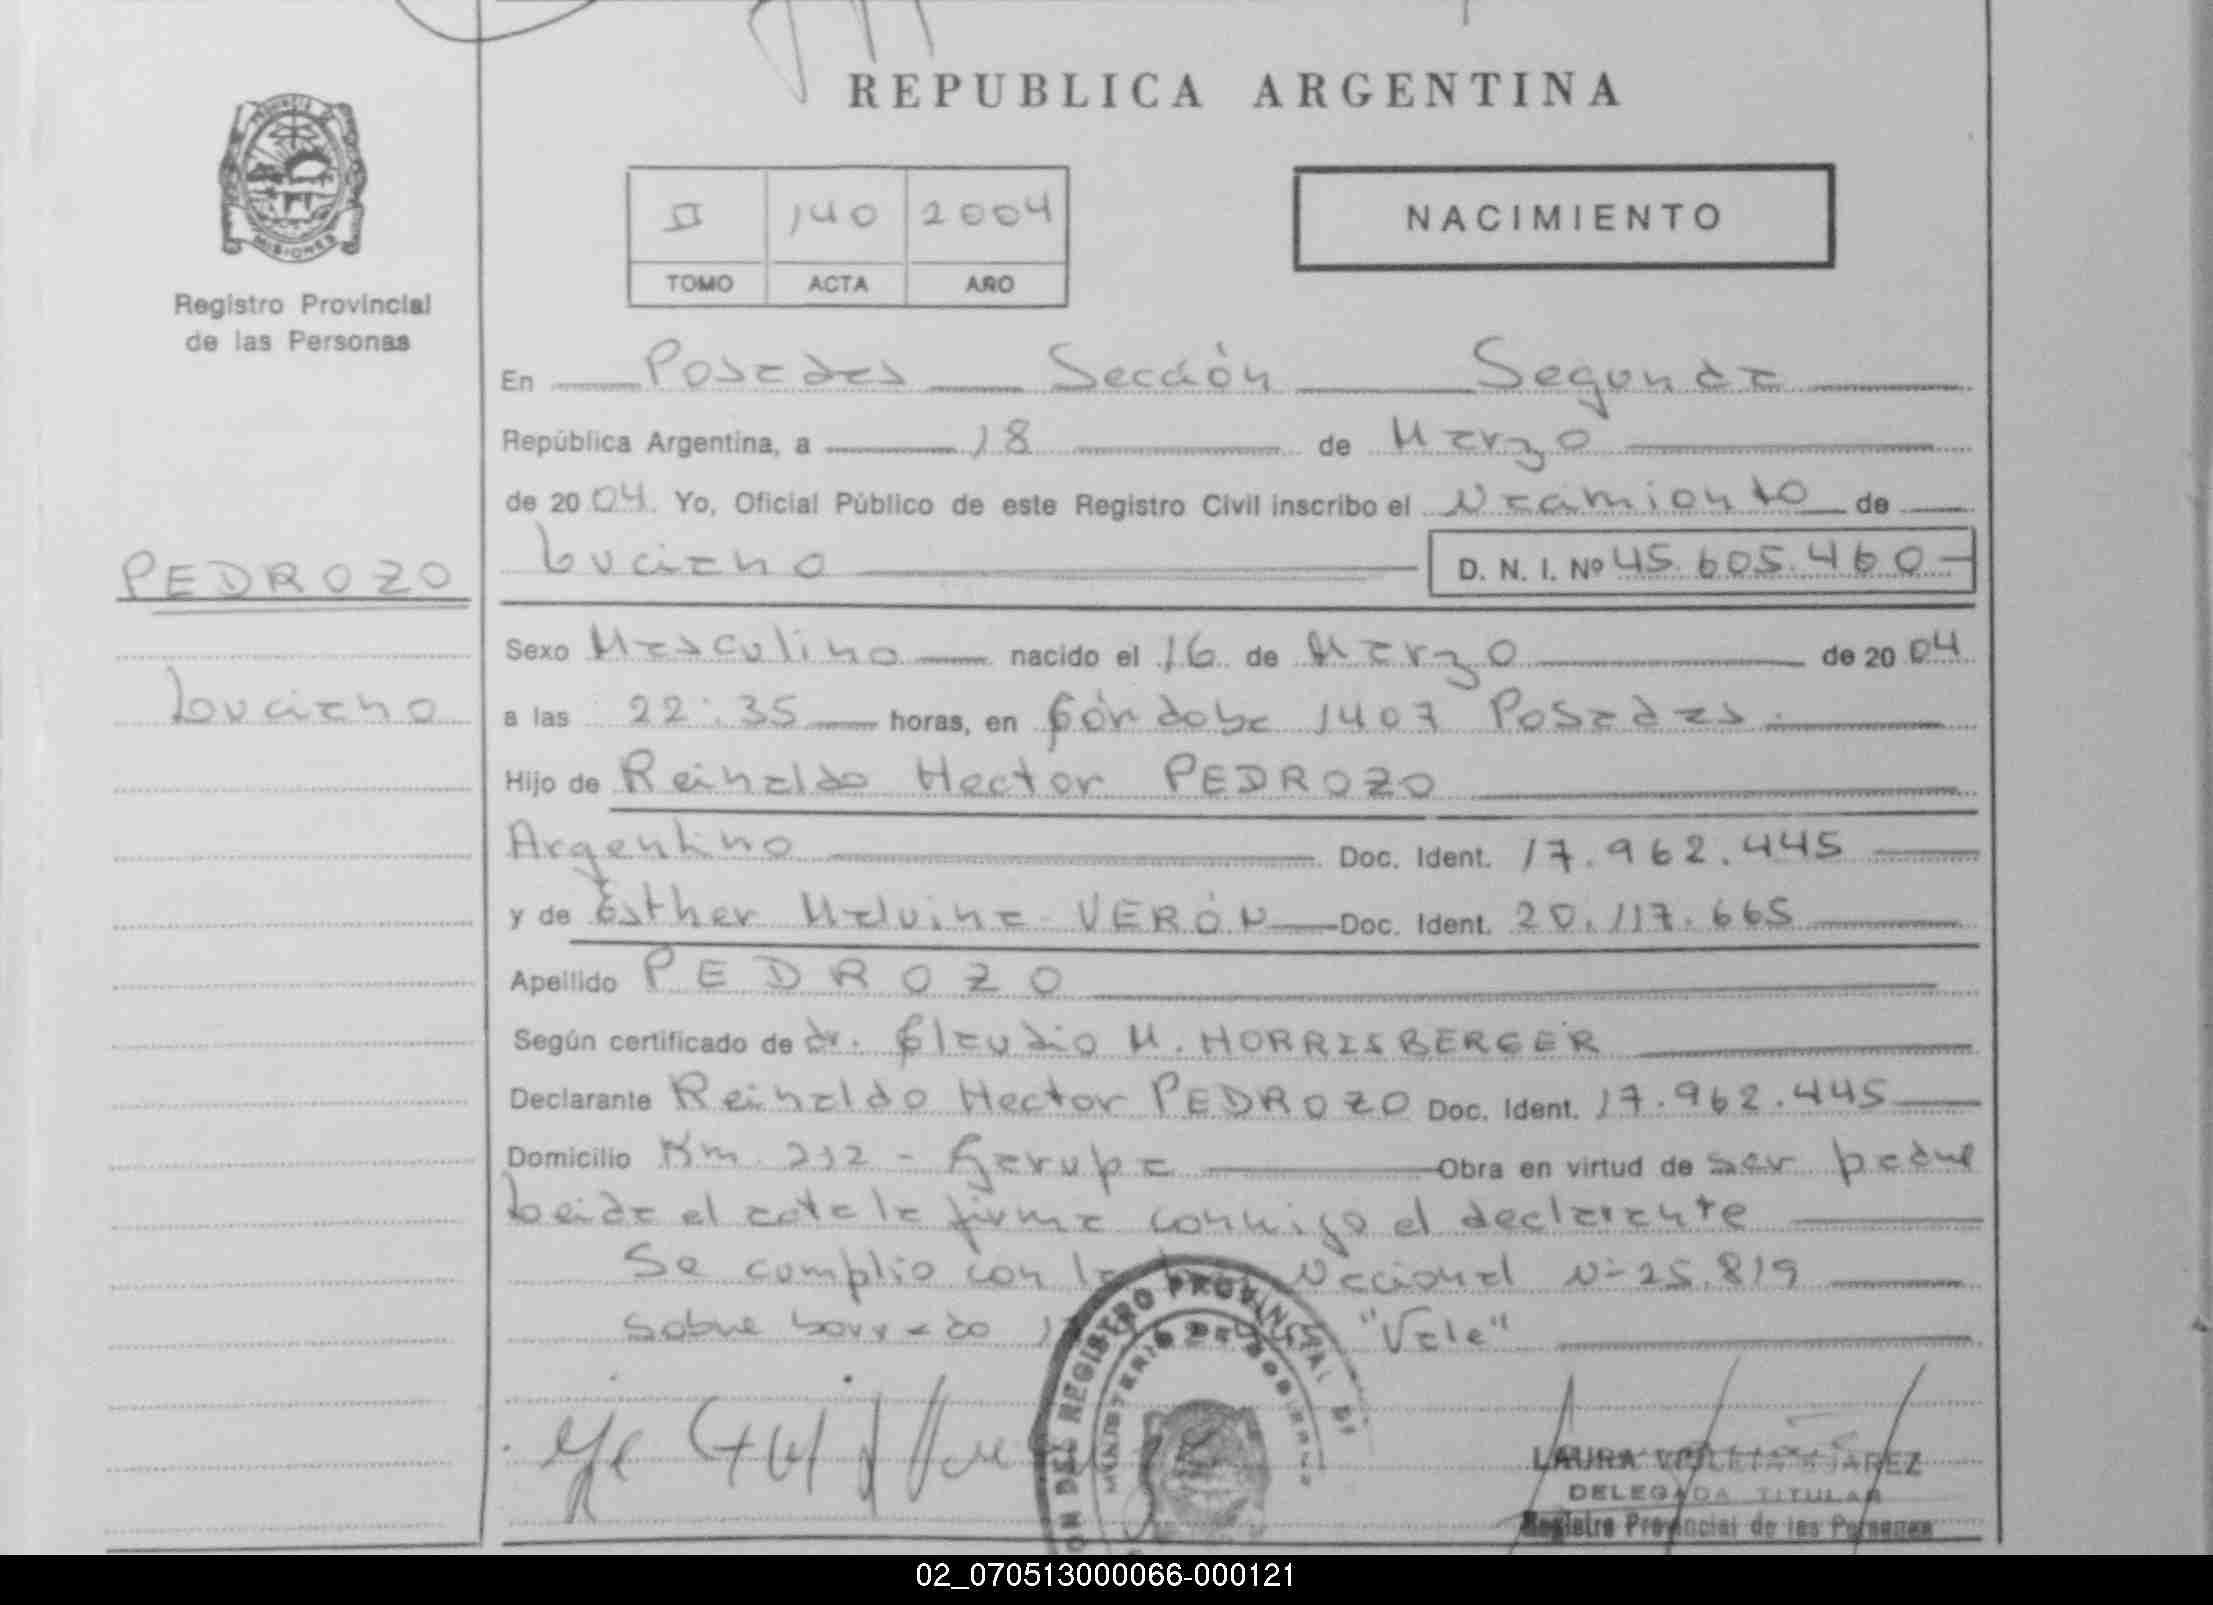 REPUBLICA ARGENTINA
PROVINCIA DE
MISIONES
Registro Provincial
de las Personas
II 140 2004
TOMO ACTA AÑO
NACIMIENTO
En Posadas Sección Segunda
República Argentina, a 18 de Marzo
de 2004. Yo, Oficial Público de este Registro Civil inscribo el Nacimiento de
Luciano D. N. I. Nº 45.605.460
PEDROZO
Luciano
Sexo Masculino nacido el 16 de Marzo de 2004
a las 22:35 horas, en Córdoba 1407 Posadas.
Hijo de Reinaldo Hector PEDROZO
Argentino Doc. Ident. 17.962.445
y de Esther Malvina VERÓN Doc. Ident. 20.117.665
Apellido PEDROZO
Según certificado de dr. Claudio M. HORRISBERGER
Declarante Reinaldo Hector PEDROZO Doc. Ident. 17.962.445
Domicilio Km. 212 - Garupa Obra en virtud de ser padre
Leida el acta la firma conmigo el declarante
Se cumplio con la Nacional Nº 25.819
Sobre borrado "Vale"
DEL REGISTRO PROVINCIAL DE
MINISTERIO DE GOBIERNO
LAURA VIOLETA JUAREZ
DELEGADA TITULAR
Registro Provincial de las Personas
02_070513000066-000121